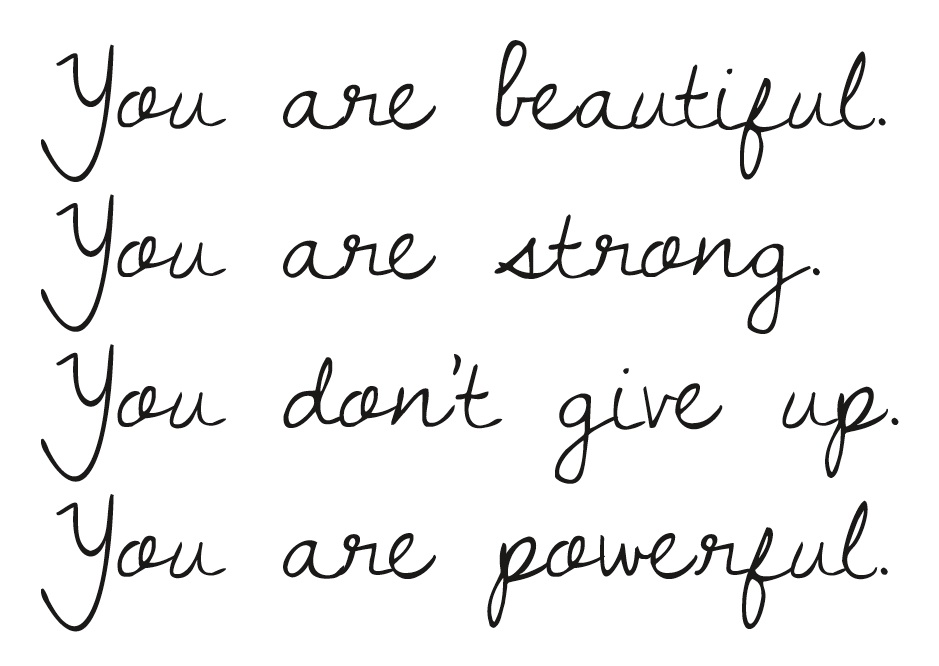 You are beautiful.
You are strong.
You don't give up.
You are powerful.